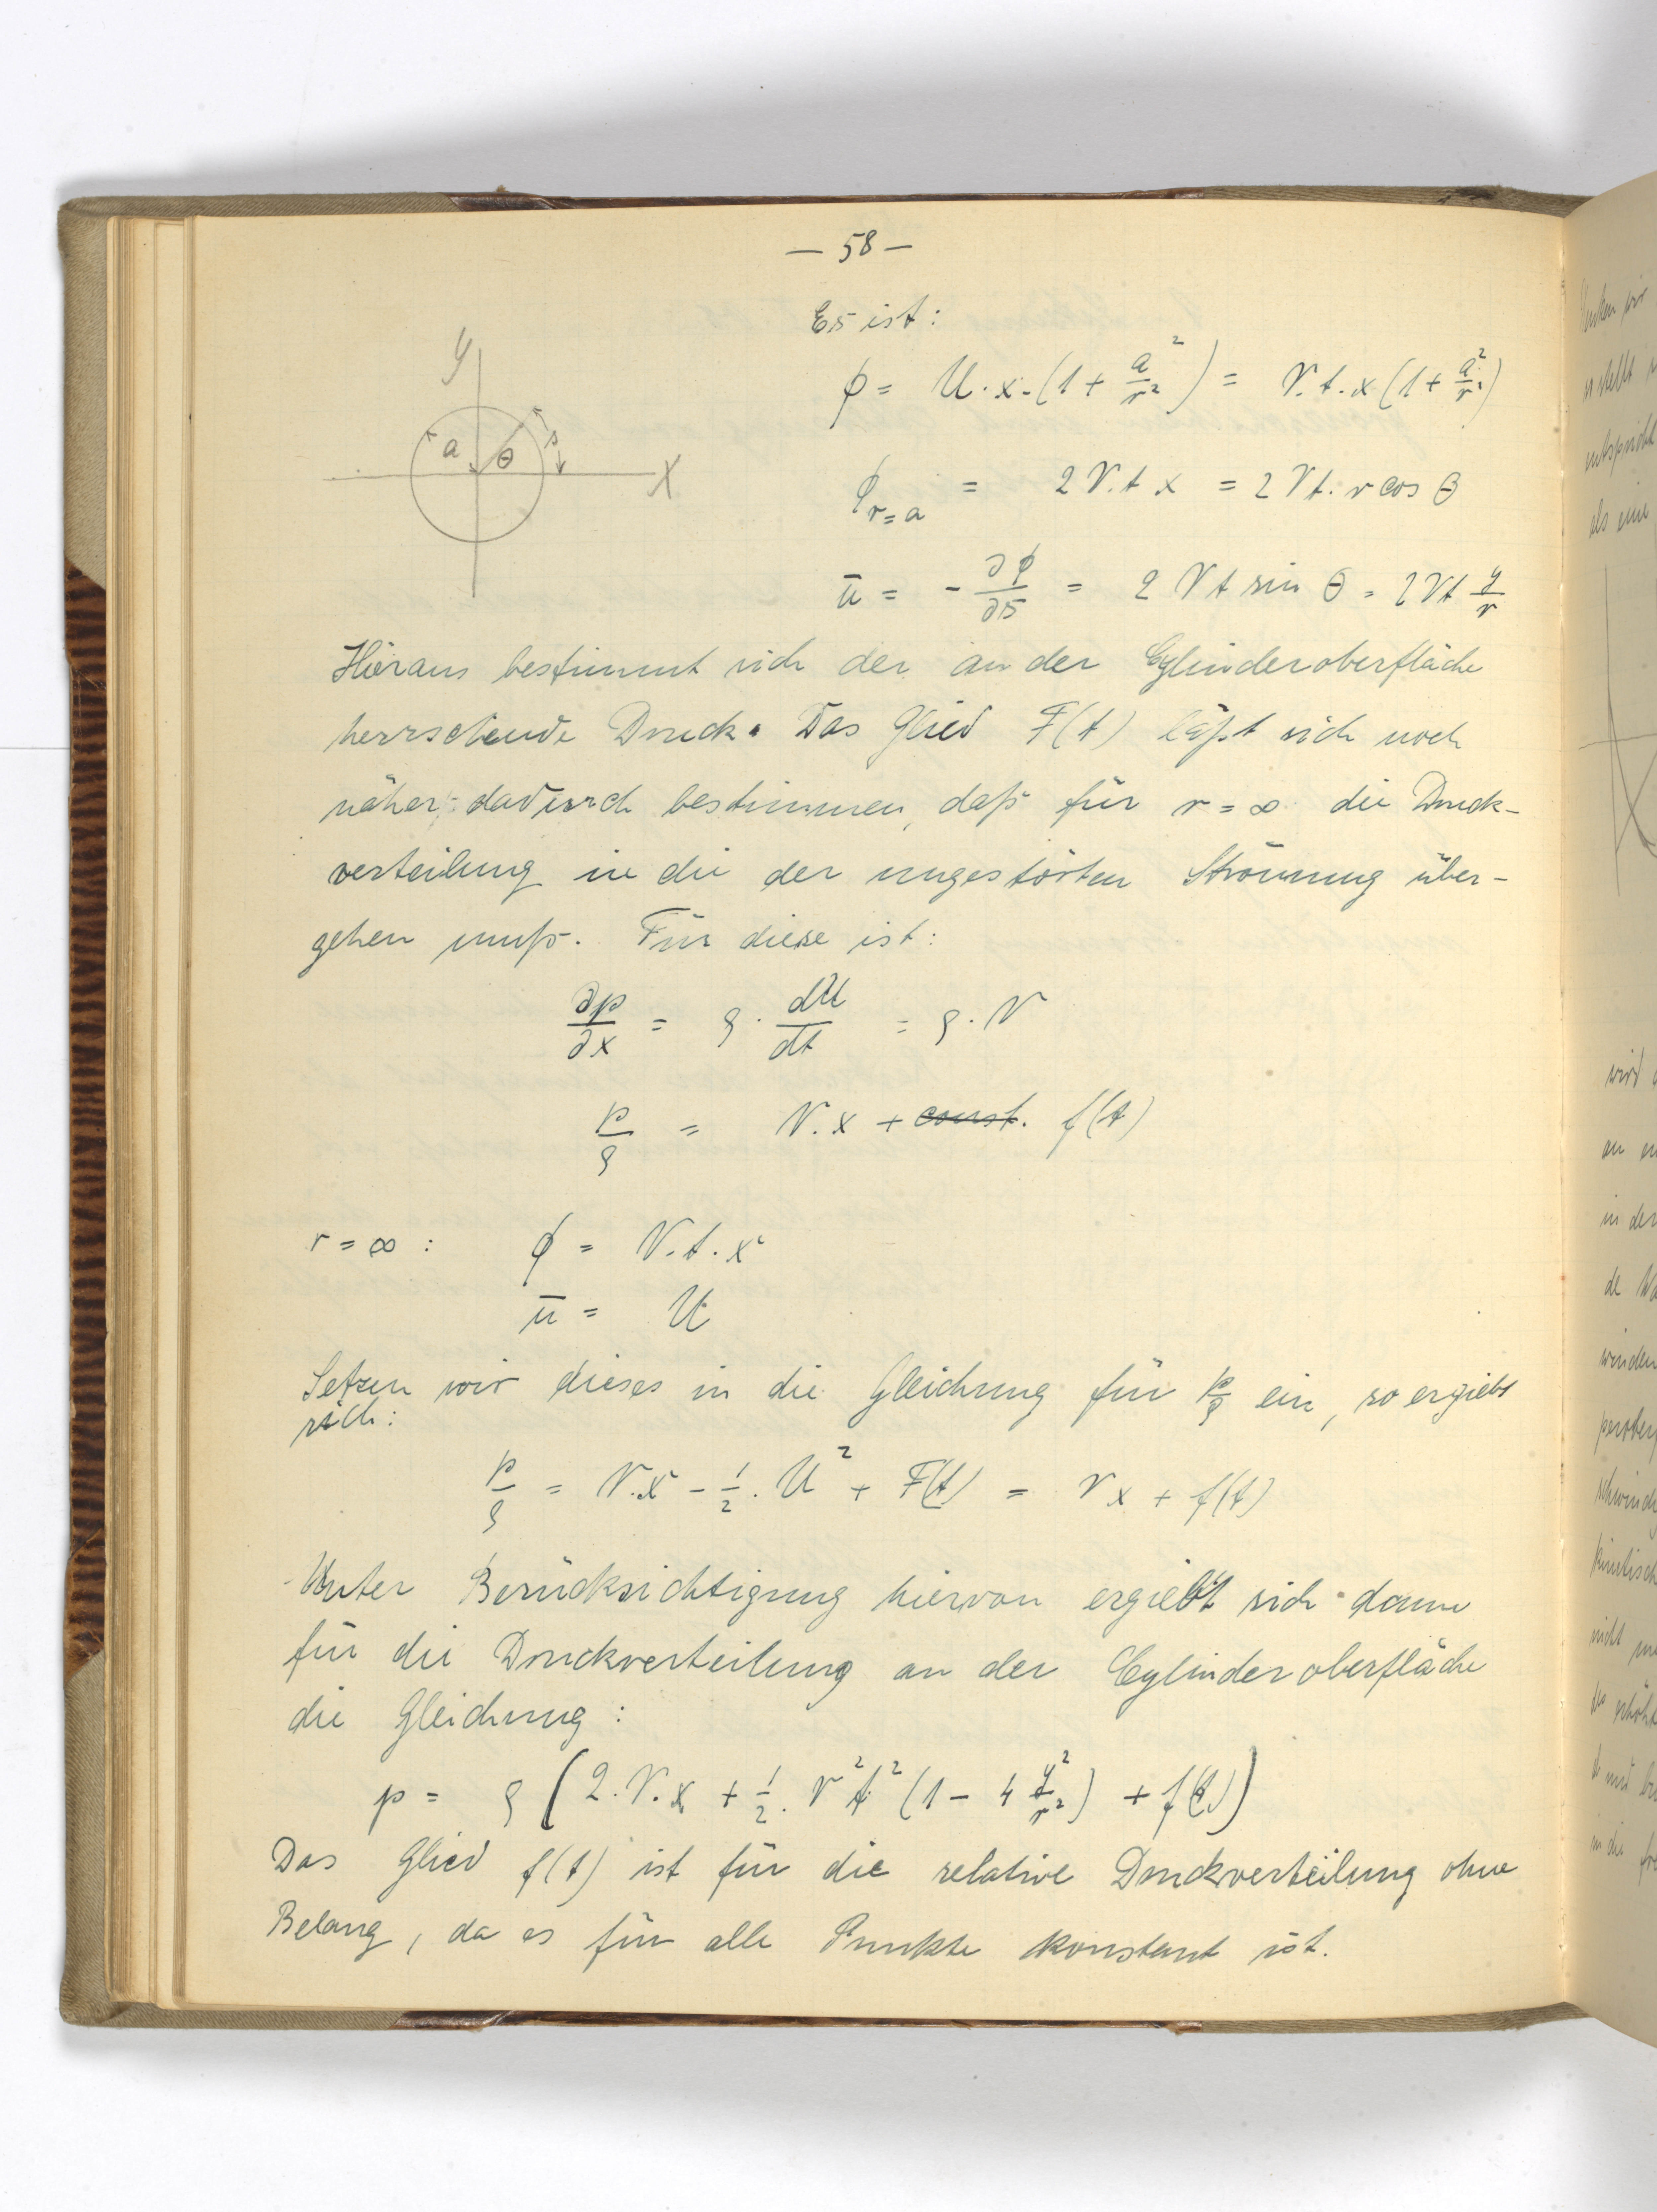 — 58 —
Es ist:
y
a
θ
s
X
φ = U · x · (1 + a²/r²) = V. t. x (1 + a²/r²)
φ r=a = 2 V. t x = 2 Vt. r cos θ
ū = - ∂φ/∂s = 2 V t sin θ = 2Vt y/r
Hieraus bestimmt sich der an der Cylinderoberfläche
herrschende Druck. Das Glied F(t) läßt sich noch
näher dadurch bestimmen, daß für r = ∞ die Druck-
verteilung in die der ungestörten Strömung über-
gehen muß. Für diese ist:
∂p/∂x = ρ · dU/dt = ρ · V
p/ρ = V. x + const. f(t)
r = ∞ : φ = V. t. x
ū = U
Setzen wir dieses in die Gleichung für p/ρ ein, so ergiebt
sich:
p/ρ = V. x - 1/2 · U² + F(t) = V x + f(t)
Unter Berücksichtigung hiervon ergiebt sich dann
für die Druckverteilung an der Cylinderoberfläche
die Gleichung:
p = ρ (2. V. x + 1/2. V² t² (1 - 4 y²/r²) + f(t))
Das Glied f(t) ist für die relative Druckverteilung ohne
Belang, da es für alle Punkte konstant ist.